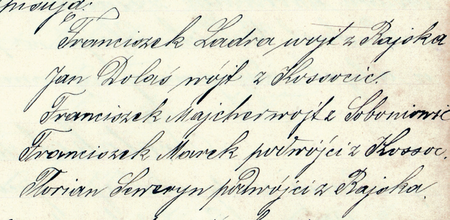 Franciszek Ladra wójt z Rajska
Jan Dolaś wójt z Kossocic.
Franciszek Majcher wojt z Sobonio
Franciszek Marek podwójci z Kossoc.
Florian Seweryn podwójci z Rajska.